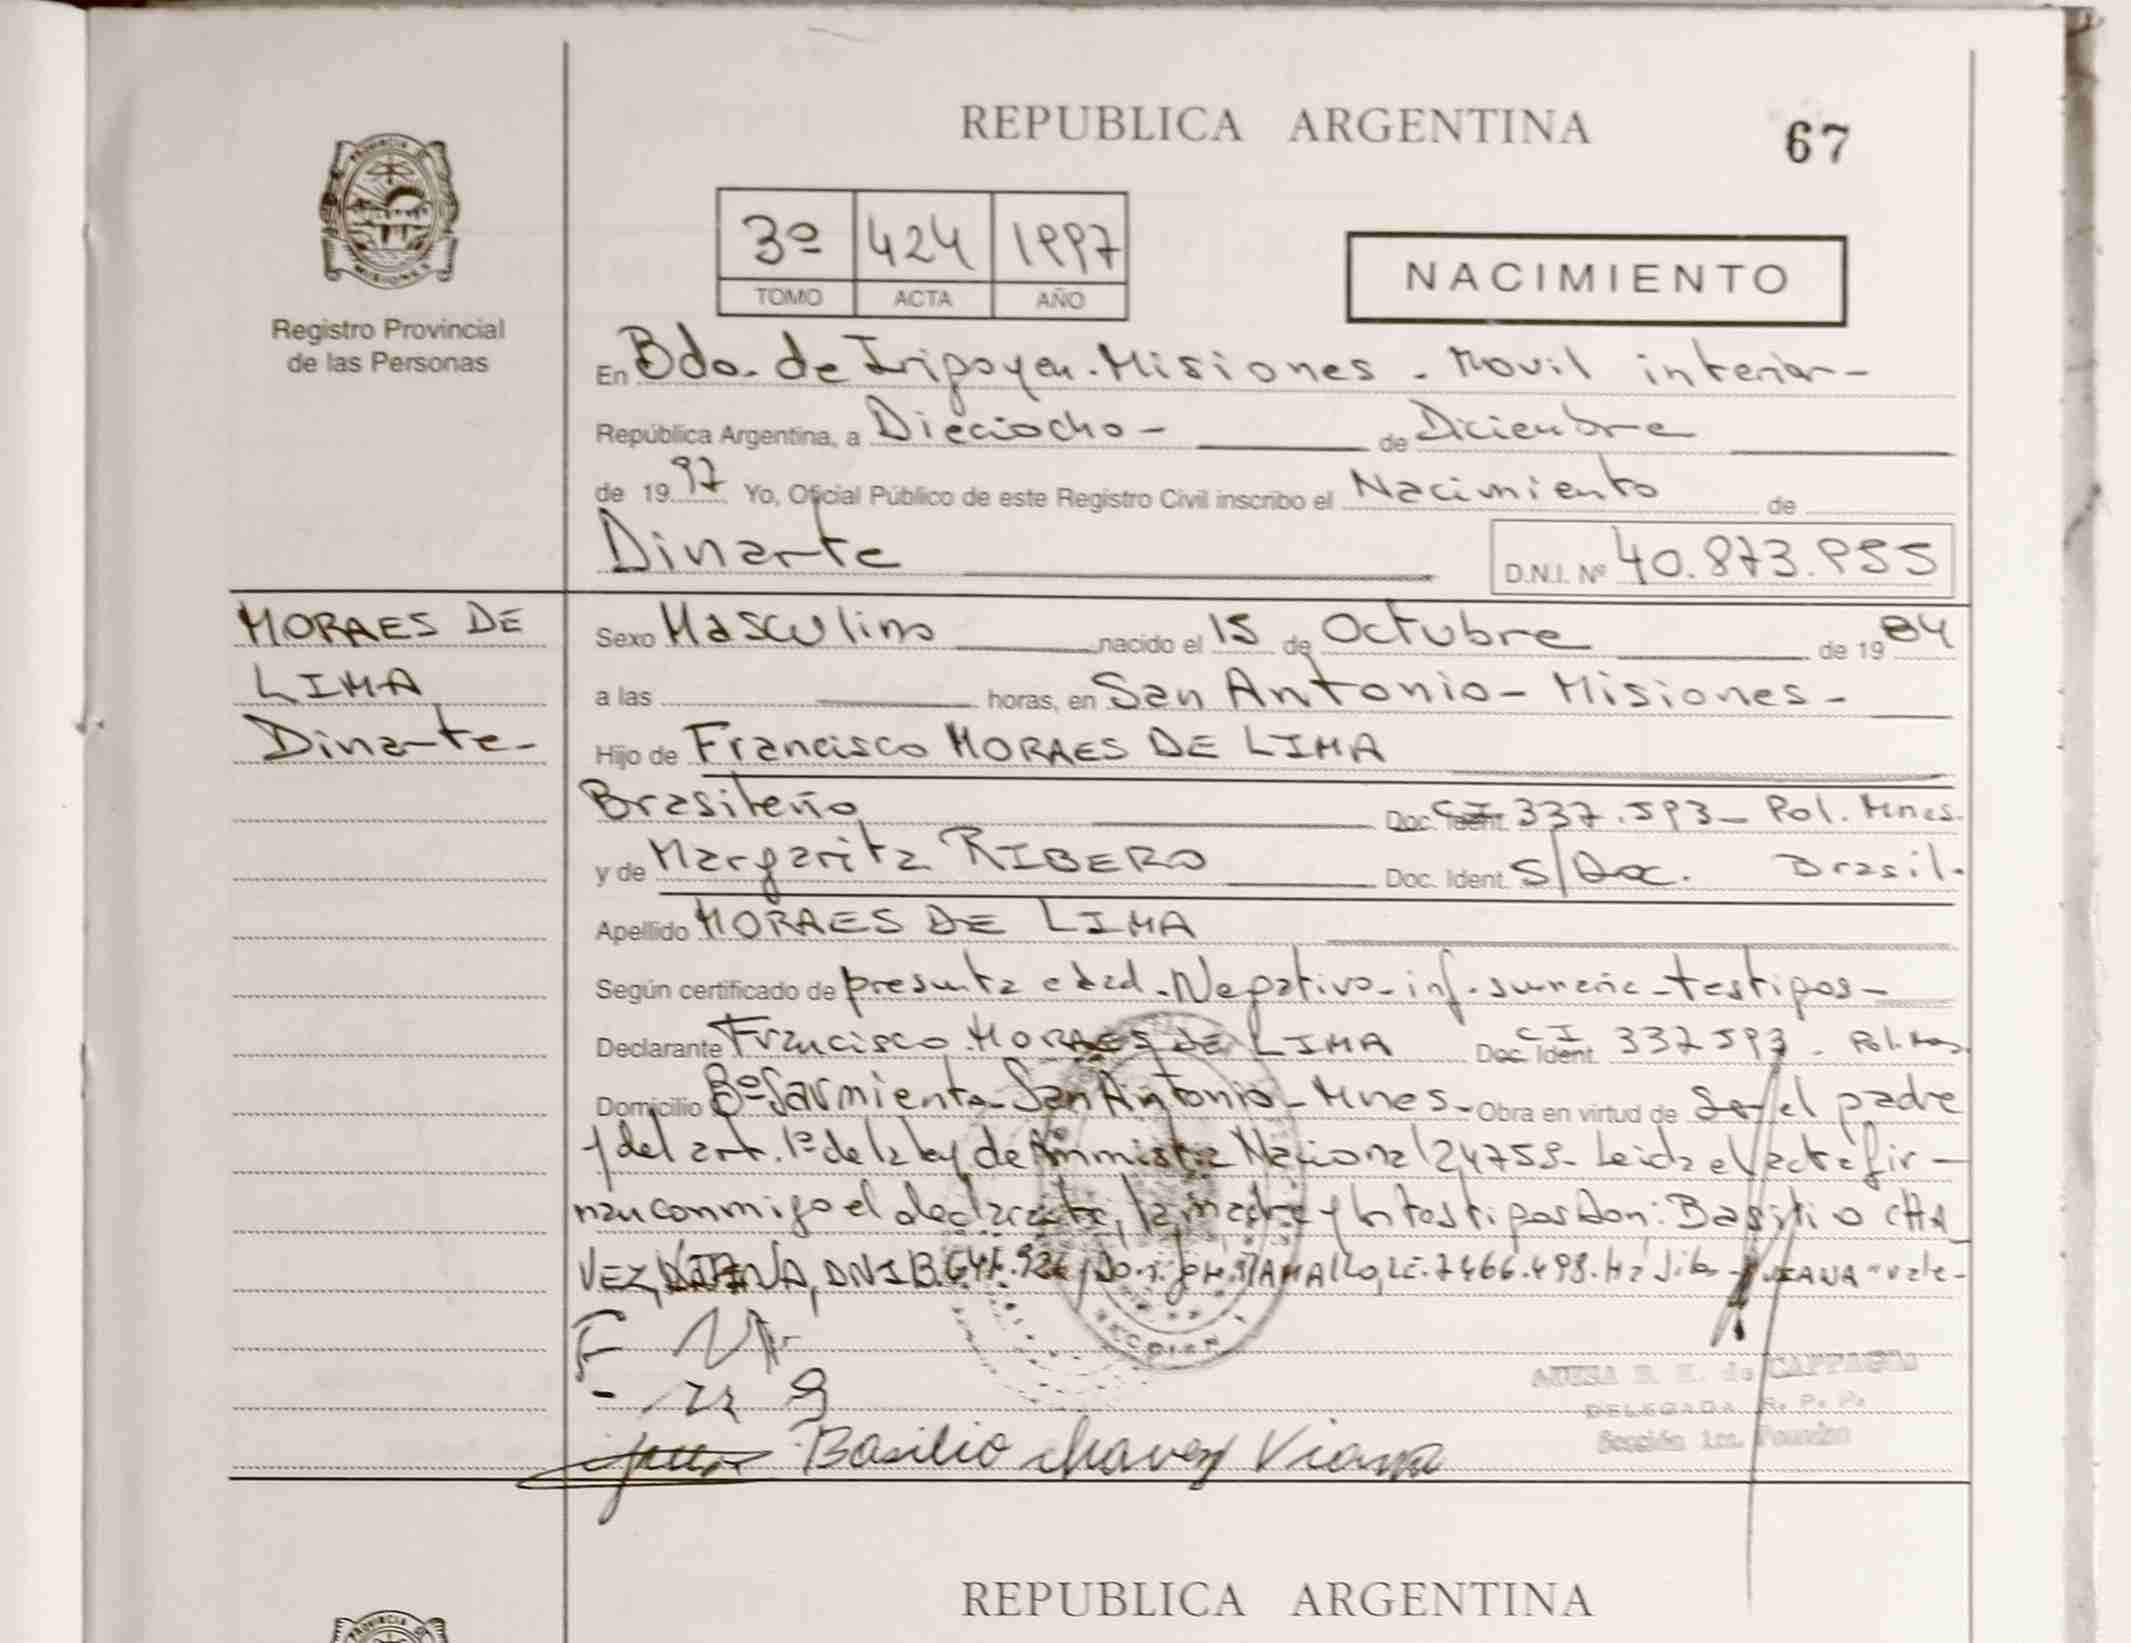 REPUBLICA ARGENTINA
67
PROVINCIA DE
MISIONES
Registro Provincial
de las Personas
3º 424 1997
TOMO ACTA AÑO
NACIMIENTO
En Bdo. de Irigoyen - Misiones - Movil interior -
República Argentina, a Dieciocho - de Diciembre
de 1997 Yo, Oficial Público de este Registro Civil inscribo el Nacimiento de
Dinarte
D.N.I. Nº 40.873.955
MORAES DE
LIMA
Dinarte -
Sexo Masculino nacido el 15 de Octubre de 1984
a las horas, en San Antonio - Misiones -
Hijo de Francisco MORAES DE LIMA
Brasileño Doc. Ident. CI 337.593 - Pol. Mnes.
y de Margarita RIBERO Doc. Ident. S/Doc. Brasil.
Apellido MORAES DE LIMA
Según certificado de presunta edad - Negativo - inf. sumaria - testigos -
Declarante Francisco MORAES DE LIMA Doc. Ident. CI 337593 - Pol. Mnes
Domicilio Bº Sarmiento - San Antonio - Mnes - Obra en virtud de Ser el padre
y del art. 1º de la ley de Amnistia Nacional 24755 - Leida el acta fir -
man conmigo el declarante, la madre y los testigos Don: Basilio CHA
VEZ, DNI
LE. 7466.498. VIANA "vale -
Basilio Chavez Viana
SECCION 1
DELEGADA R. P. P.
Sección 1ra. Posadas
REPUBLICA ARGENTINA
PROVINCIA